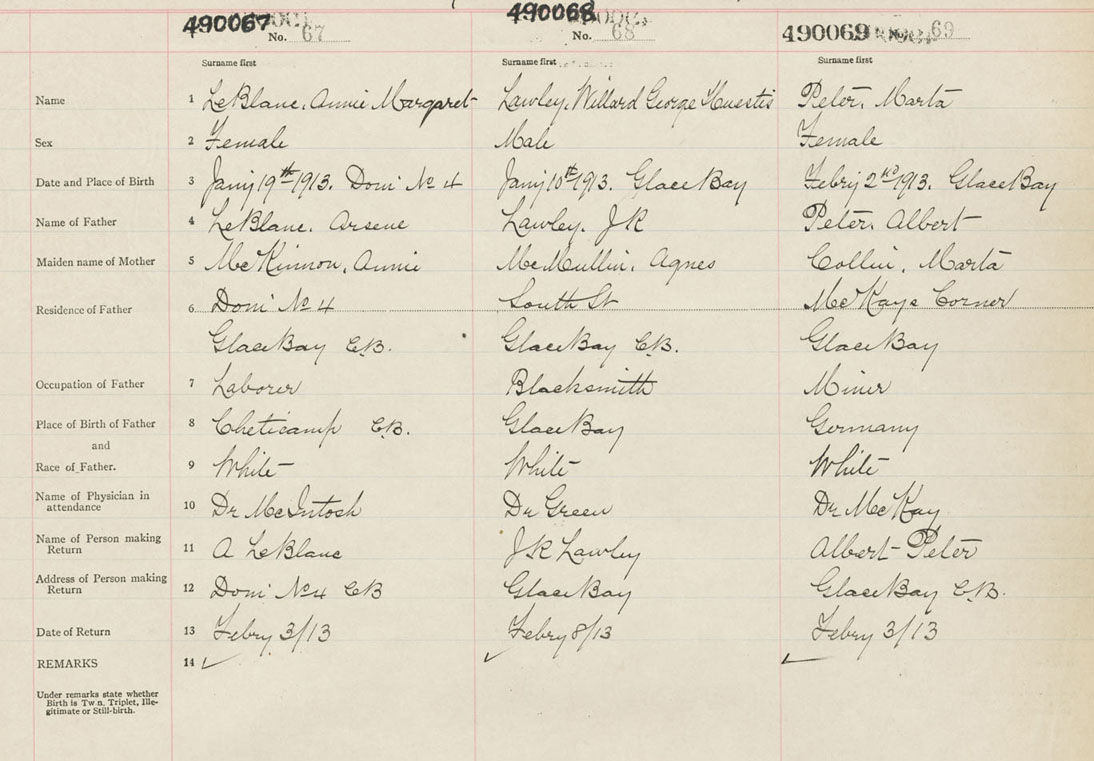 490067 490068 490069
No. 67 No. 68 No. 69
Surname first Surname first Surname first
Name 1 LeBlanc, Annie Margaret Lawley, Willard George Huestis Peter, Marta
Sex 2 Female Male Female
Date and Place of Birth 3 Jany 19th 1913. Dom No 4 Jany 10th 1913. Glace Bay Febry 2nd 1913. Glace Bay
Name of Father 4 LeBlanc, Arsene Lawley, J R Peter, Albert
Maiden name of Mother 5 McKinnon, Annie McMullin, Agnes Collin, Marta
Residence of Father 6 Dom No 4 South St McKays Corner
Glace Bay C.B. Glace Bay C.B. Glace Bay
Occupation of Father 7 Laborer Blacksmith Miner
Place of Birth of Father 8 Cheticamp C.B. Glace Bay Germany
and
Race of Father. 9 White White White
Name of Physician in
attendance 10 Dr McIntosh Dr Green Dr McKay
Name of Person making
Return 11 A LeBlanc J R Lawley Albert Peter
Address of Person making
Return 12 Dom No 4 CB Glace Bay Glace Bay C.B.
Date of Return 13 Febry 3/13 Febry 8/13 Febry 3/13
REMARKS 14 ✓ ✓ ✓
Under remarks state whether
Birth is Tw n, Triplet, Ille-
gitimate or Still-birth.